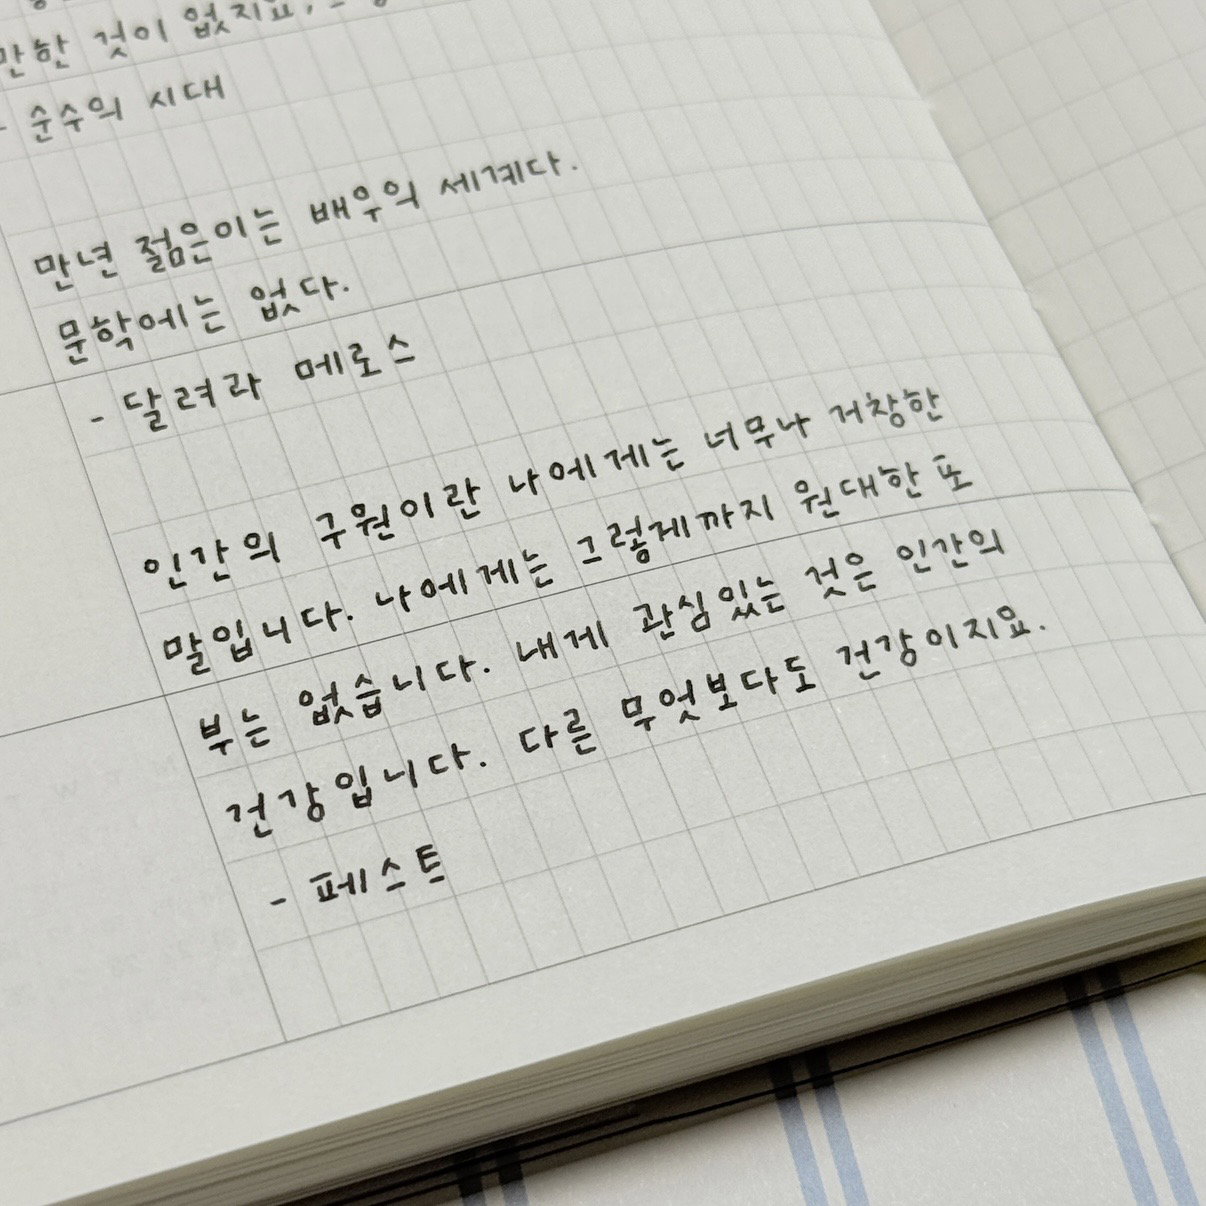 만한 것이 없지요,
- 순수의 시대
만년 젊은이는 배우의 세계다.
문학에는 없다.
- 달려라 메로스
인간의 구원이란 나에게는 너무나 거창한
말입니다. 나에게는 그렇게까지 원대한 포
부는 없습니다. 내게 관심있는 것은 인간의
건강입니다. 다른 무엇보다도 건강이지요.
- 페스트